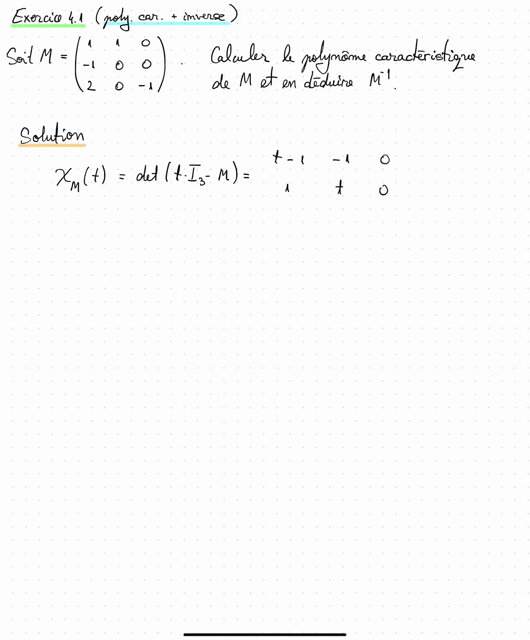 Exercice 4.1 (poly. car. + inverse)
Soit M = ( 1 1 0 ; -1 0 0 ; 2 0 -1 ). Calculer le polynôme caractéristique
de M et en déduire M⁻¹.
Solution
χ_M(t) = det(t·I₃ - M) = t-1 -1 0
1 t 0